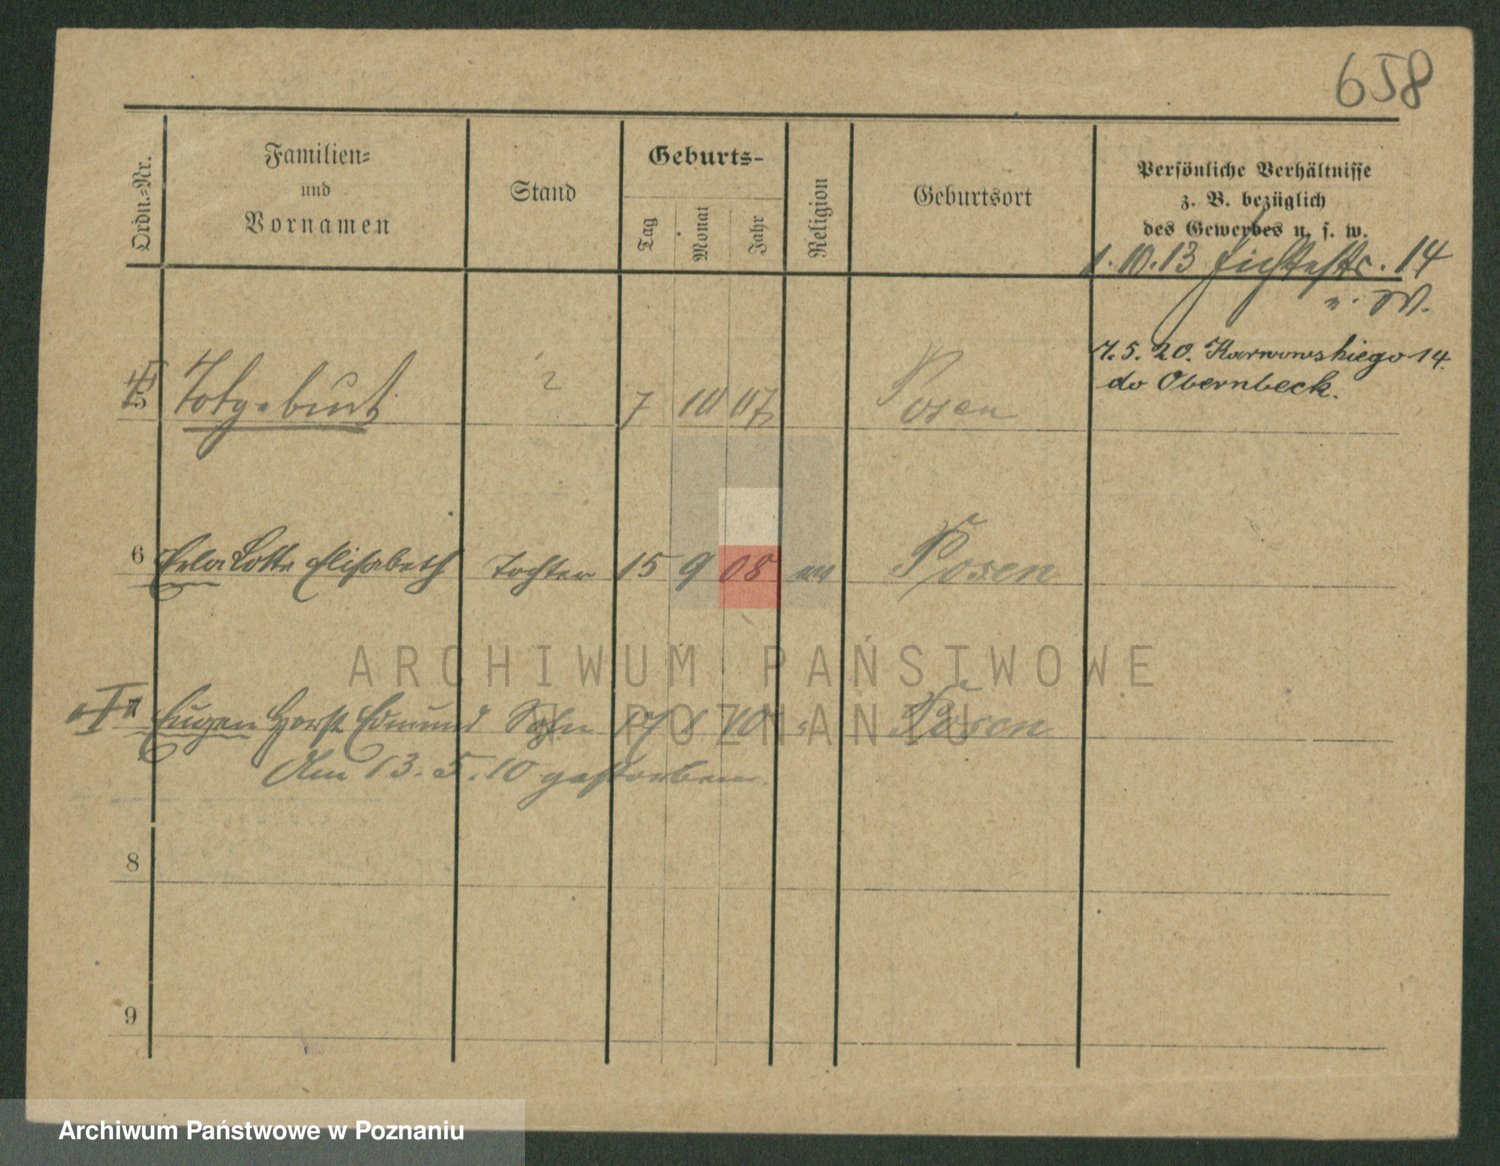 658
Ordn.-Nr.
Familien-
und
Vornamen
Stand
Geburts-
Tag
Monat
Jahr
Religion
Geburtsort
Persönliche Verhältnisse
z. B. bezüglich
des Gewerbes u. s. w.
1.10.13 Fichtestr. 14
n. W.
7.5.20. Karwowskiego 14.
do Obernbeck.
5 Totgeburt 7 10 07 Posen
6 Erla Lotte Elisabeth Tochter 15 9 08 Posen
7 Eugen Horst Edmund Sohn 17 10 Posen
Am 13.5.10 gestorben.
8
9
ARCHIWUM PAŃSTWOWE
W POZNANIU
Archiwum Państwowe w Poznaniu